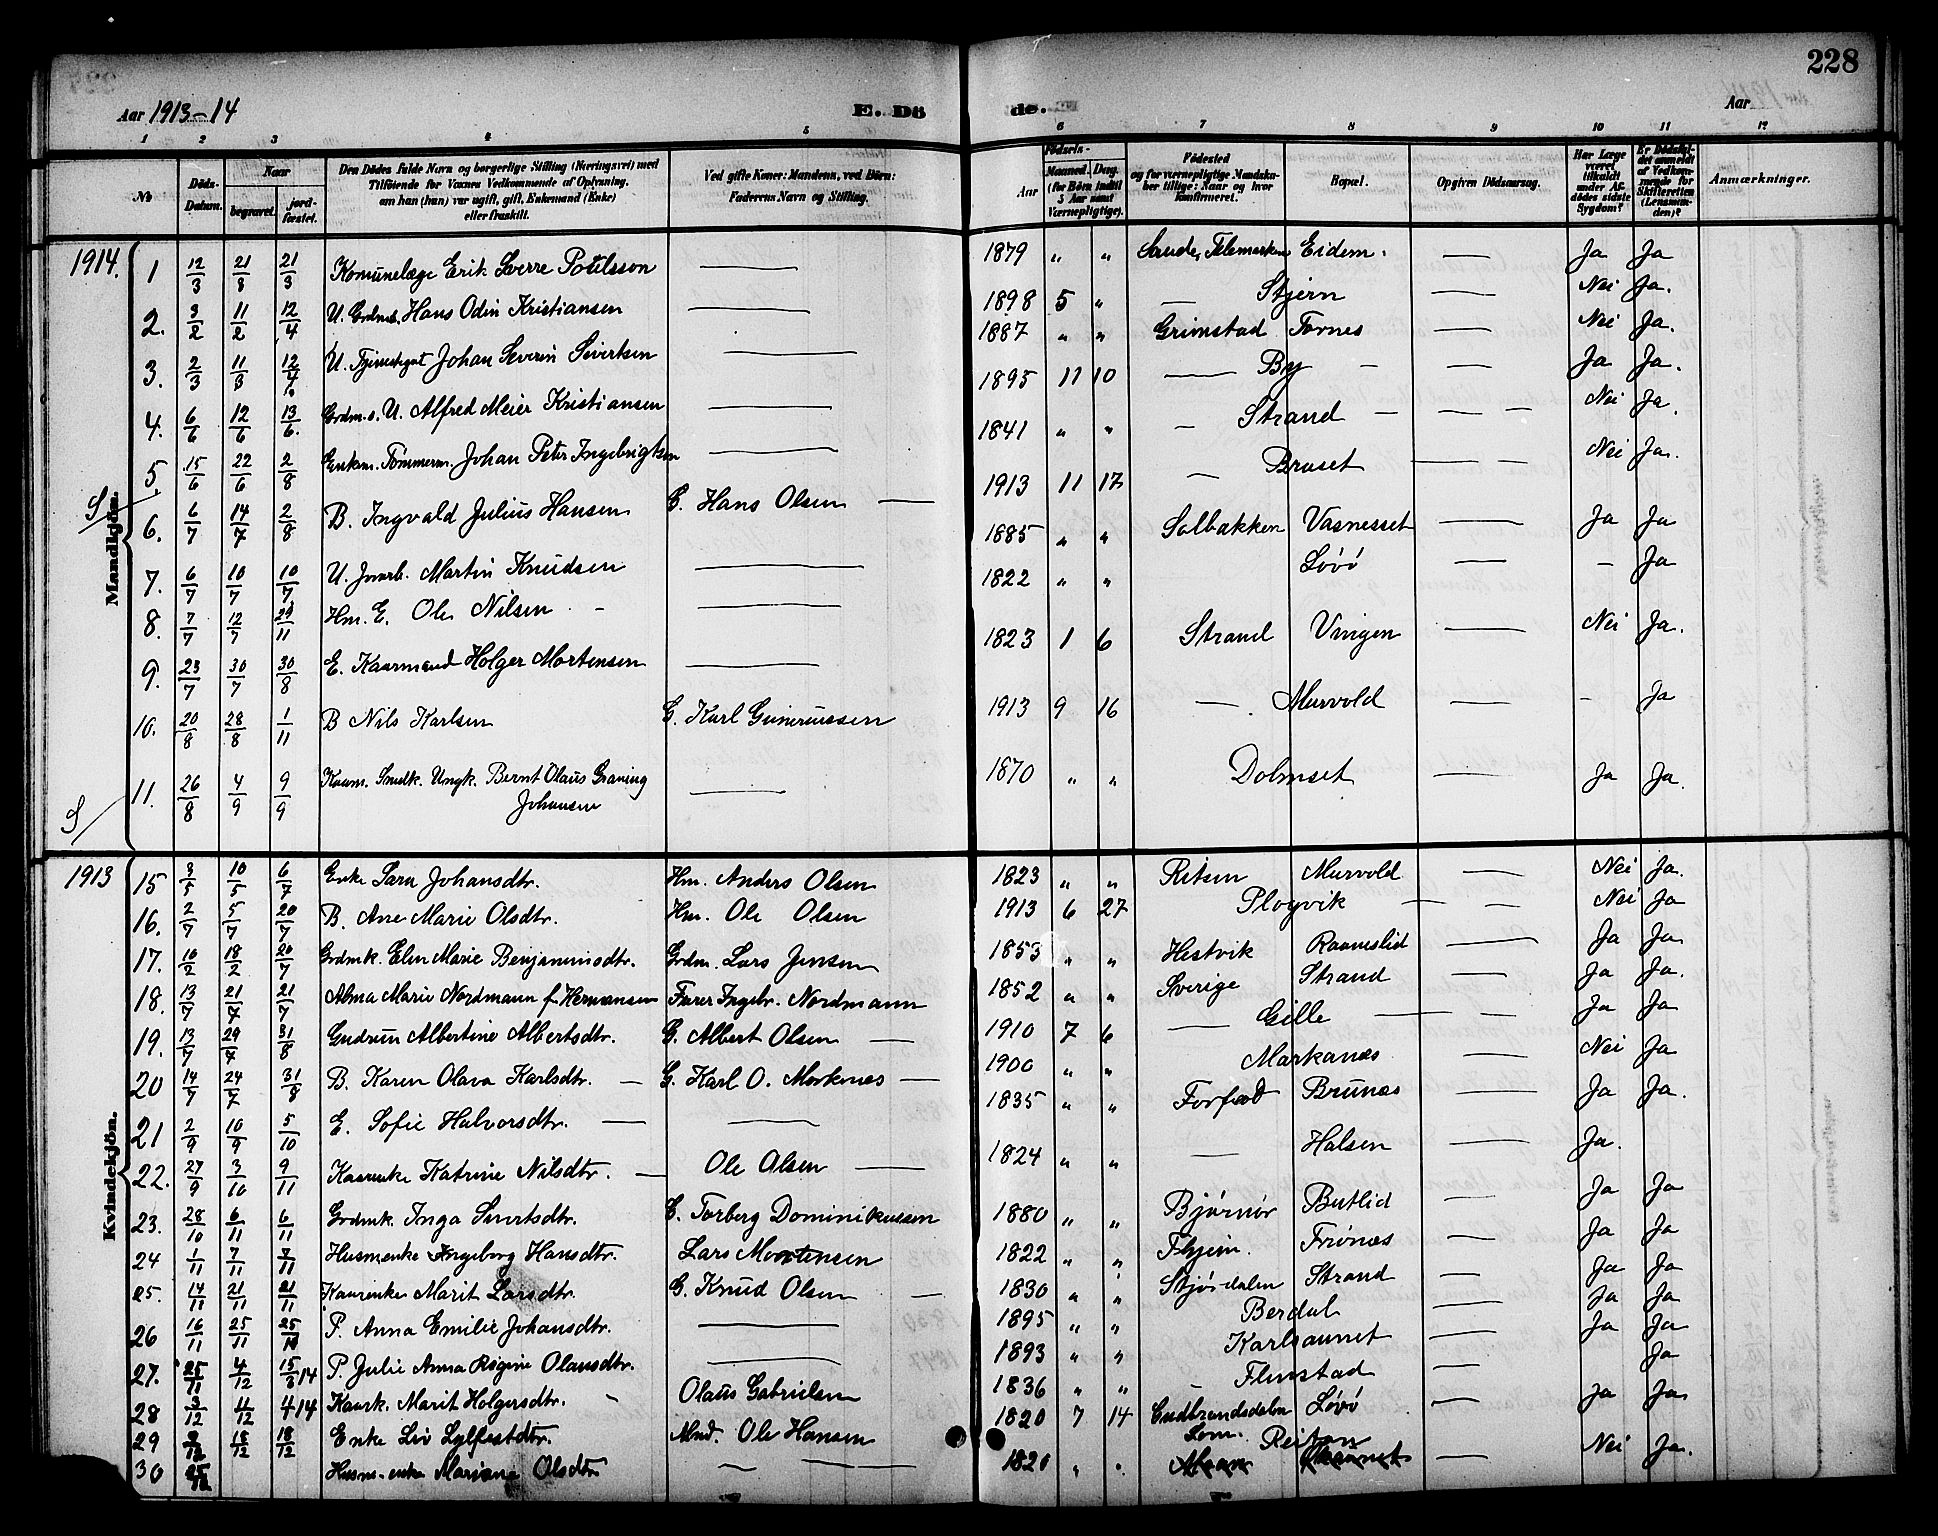 228
Aar 1913-14 E. Döde. Aar
1 2 3 4 5 6 7 8 9 10 11 12
No Döds-Datum. Naar begravet. jordfæstet. Den Dödes fulde Navn og borgerlige Stilling (Næringsvei) med Tilföiende for Voxnes Vedkommende af Oplysning, om han (hun) var ugift, gift, Enkemand (Enke) eller fraskilt. Ved gifte Koner: Mandens, ved Börn: Faderens Navn og Stilling. Födsels- Aar Maaned. Dag. (for Börn indtil 5 Aar samt Værnepligtige). Födested og for værnepligtige Mandskaber tillige: Naar og hvor konfirmeret. Bopæl. Opgiven Dödsaarsag. Har Læge været tilkaldt under Afdödes sidste Sygdom? Er Dödsfaldet anmeldt af Vedkommende for Skifteretten (Lensmanden)? Anmærkninger.
1914.
Mandkjön.
1 12/3 21/8 21/3 Komunelæge Erik Sverre Potilsson — 1879 " " Saude, Telemarken Eidem. — Ja Ja
2. 3/2 11/2 12/4 U. Hans Odin Kristiansen — 1898 5 " — Stjern — Nei Ja.
3. 2/3 11/3 12/4 U. Johan Severin Sivertsen — 1887 " " Grimstad Tornes — Nei Ja.
4. 6/6 12/6 13/6. Grdm.s. U. Alfred Meier Kristiansen — 1895 11 10 — By — Ja Ja.
5. 15/6 22/6 2/8 Enkem. Tømmerm. Johan Peter Ingebrigtsen — 1841 " " — Strand — Nei Ja.
S 6. 6/7 14/7 2/8 B. Ingvald Julius Hansen G. Hans Olsen — 1913 11 17 — Bruset — Nei Ja.
7. 6/7 10/7 10/7. U. Martin Knudsen — 1885 " " Solbakken Vasnesset — Ja Ja
8. 7/7 12/7 29/11 Hm. E. Ole Nilsen — 1822 " " Løvö — – Ja
9. 23/7 30/7 30/8 E. Kaarmand Holger Mortensen — 1823 1 6 Strand Vingen — Nei Ja.
10. 20/8 28/8 1/11 B Nils Karlsen G. Karl 1913 9 16 — Murvold — – Ja
S 11. 26/8 4/9 9/9 Kaarm. Ungk. Bernt Olaus Graning — 1870 " " Dolmset — Ja Ja.
Johansen
1913
Kvindekjön.
15 3/5 10/5 6/7 Enke Sara Johansdtr. Hm. Anders Olsen 1823 " " Ritsen Murvold — Nei Ja.
16. 2/7 5/7 20/7 B. Ane Marie Olsdtr. Hm. Ole Olsen 1913 6 27 Plogvik — Nei Ja
17. 10/2 18/2 20/7 Grdmk. Elen Marie Benjaminsdtr. Grdm. Lars Jensen 1853 " " Hestvik Raamslid — Ja Ja.
18. 13/7 21/7 21/7 Alma Marie Nordmann f. Hermansen Ingebr. Nordmann 1852 " " Sverige Strand — Ja Ja.
19. 13/7 29/7 31/8 Gudrun Albertine Albertsdtr. G. Albert Olsen — 1910 7 6 — Gille — Ja Ja
20 14/7 24/7 31/8 B. Karen Olava Karlsdtr. — G. Karl O. Morkenes — 1900 " " Markanæs — Nei Ja
21 2/9 10/9 5/10 E. Sofie Halvorsdtr. — — 1835 " " Forfod Brunæs — Ja Ja.
22. 27/9 3/10 9/11 Kaarenke Katrine Nilsdtr. — Ole Olsen — 1824 " " — Halsen — Ja.
23. 28/10 6/11 6/11 Grdmk. Inga Sivertsdtr. G. Torberg Dominikussen 1880 " " Bjørnør Butlid — Ja Ja
24 1/11 7/11 7/11 Husmenke Ingeborg Hansdtr. Lars Mortensen 1822 " " Frönæs — Ja Ja
25. 14/11 21/11 21/11 Kaarenke Marit Larsdtr. G. Knud Olsen — 1830 " " Stjørdalen Strand — Ja Ja
26 16/11 25/11 25/11 P. Anna Emilie Johansdtr. — 1895 " " Berdal — Ja Ja
27. 25/11 4/12 15/3 14 P. Julie Anna Regine Olausdtr. — 1893 " " Karlsaunet — Ja Ja
28 3/12 11/12 4/14 Kaark. Marit Holgersdtr. Olaus Gabrielsen 1836 " " Flenstad — Ja
29 18/12 18/12 Enke Liv Sylfestdtr. Ole Hansen 1820 7 14 Gudbrandsdalen Løvö — Ja Ja
Lom.
30 25/12 Husm. enke Mariane Olsdtr — 1820 " " Reitan — Nei Ja.